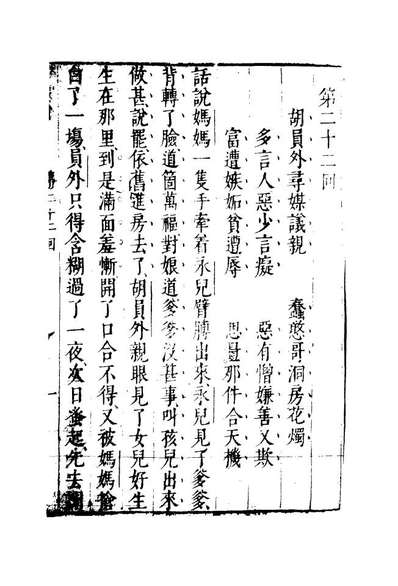 第二十二回
胡員外尋媒議親　蠢憨哥洞房花燭
多言人惡少言癡　惡有憎嫌善又欺
富遭嫉妬貧遭辱　思量那件合天機
話說媽媽一隻手牽着永兒臂膊出來永兒見了爹爹
背轉了臉道箇萬福對娘道爹爹沒甚事叫孩兒出來
做甚說罷依舊進房去了胡員外親眼見了女兒好生
生在那里到是滿面羞慚開了口合不得又被媽媽搶
白了一場員外只得含糊過了一夜次日蚤起先去開
二十二回